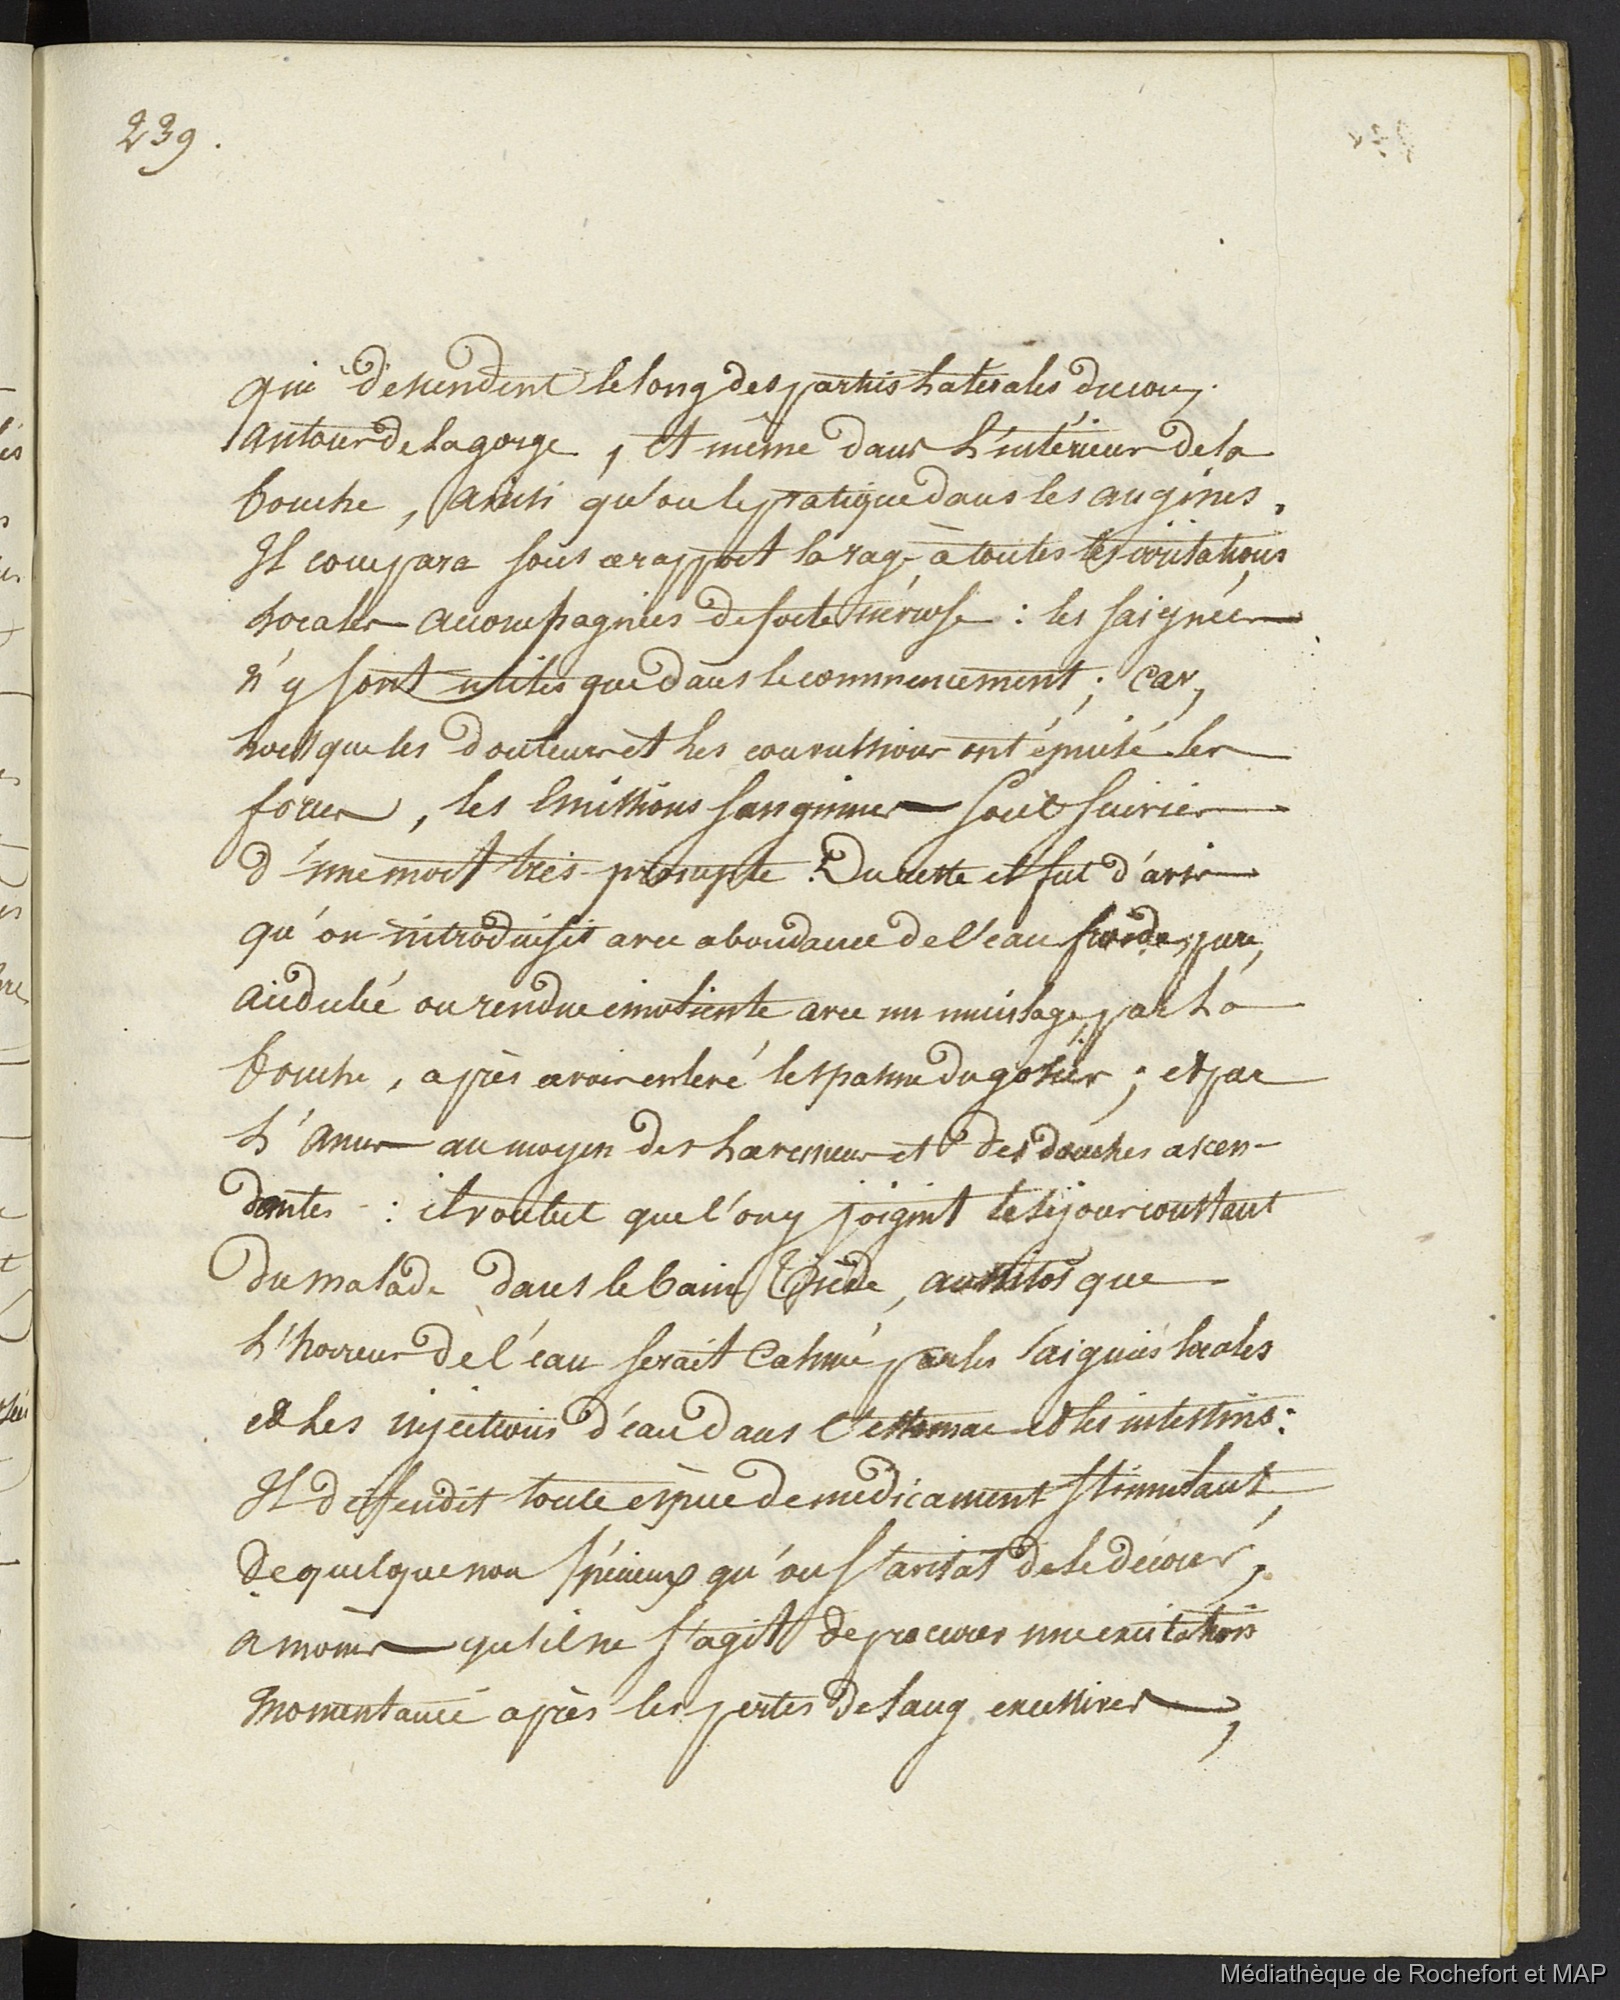 239.
qui descendent le long des parties latérales du cou,
autour de la gorge, et même dans l'intérieur de la
bouche, ainsi qu'on le pratique dans les angines.
Il compara sous ce rapport la rage à toutes les irritations
locales accompagnées de forte névrose : les saignées
n'y sont utiles que dans le commencement ; car,
lorsque les douleurs et les convulsions ont épuisé les
forces, les émissions sanguines sont suivies
d'une mort très-prompte. Du reste il fut d'avis
qu'on introduisit avec abondance de l'eau froide, pure,
acidulée ou rendue émoliente avec un mucilage, par la
bouche, après avoir enlevé le spasme du gosier ; et par
l'anus au moyen des lavemens et des douches ascen-
dantes : il voulut que l'on y joignit le séjour constant
du malade dans le bain tiède, aussitôt que
l'horreur de l'eau serait calmé par les saignées locales
et les injections d'eau dans l'estomac et les intestins :
Il deffendit toute espèce de médicament stimulant,
de quelque nom spécieux qu'on s'avisât de le décorer,
a moins qu'il ne s'agit de procurer une excitation
momentanée après les pertes de sang excessives,
Médiathèque de Rochefort et MAP